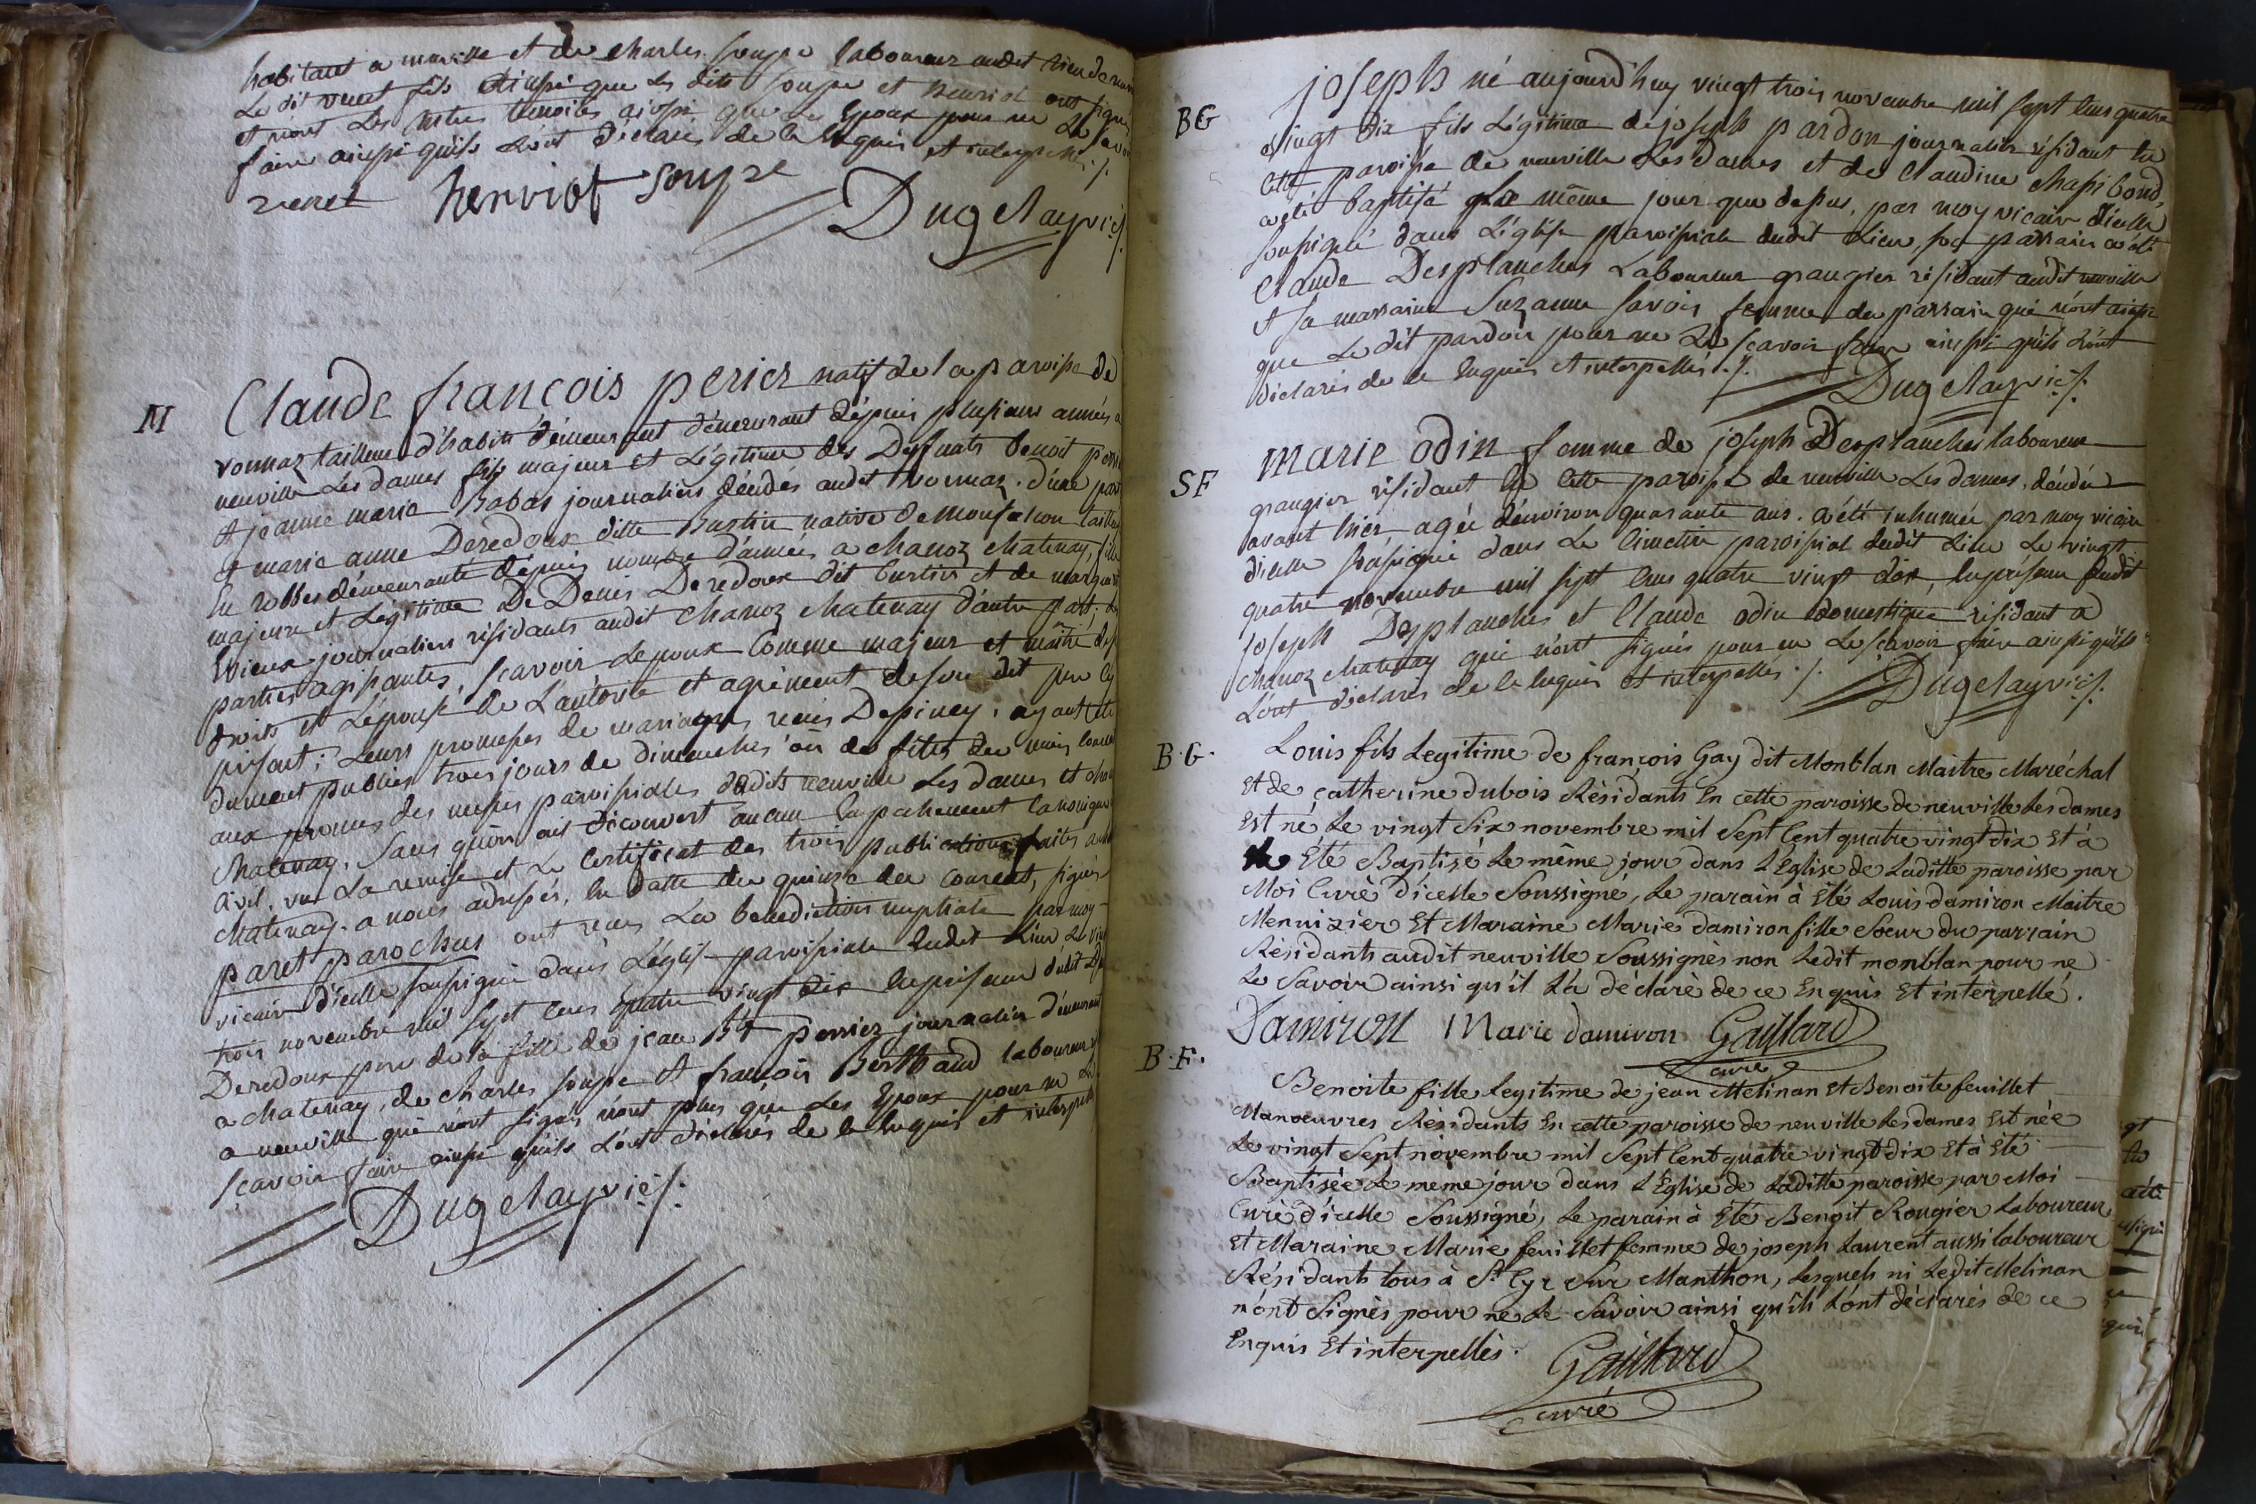 habitant a et de charles soupe laboureur audit lieu
Le dit venet fils ainsi que Les dits soupe et henriot ont signés
et n'ont Les autres temoins ainsi que Les Epoux pour ne Le scavoir
faire ainsi quils L'ont déclaré de ce Enquis et interpellés ./.
venet henriot soupe
Dugelayvic./.
M
Claude françois perier natif de la paroisse de
vonnaz tailleur d'habits demeurant demeurant dépuis plusieurs années a
neuville Les dames fils majeur et Légitime des Deffunts benoit
et jeanne marie Babas journaliers décédés audit vonnaz. d'une part
et marie anne Deredoux ditte Burtin native de tailleuse
En robbes demeurante dépuis nombre d'années a chanoz chatenay, fille
majeure et Légitime De Denis Deredoux dit burtin et de
journaliers résidants audit chanoz chatenay d'autre part. Les
parties agissantes, scavoir Lepoux Comme majeur et maître de ses
droits et L'épouse de L'autorité et agrément de son dit pere Cy
présent; Leurs promesses de mariage recüs Depiney, ayant été
dument publiées trois jours de dimanches où de fêtes du mois courant
aux prones des messes paroissiales dudit neuville Les dames et chanoz
chatenay, Sans qu'on ait découvert aucun Empechement Canonique ni
Civil. vu La remise et Le Certificat des trois publications faites audit
Chatenay. a nous adressés, En datte du quinze du courant, signés
paret parochus ont recus La bénédiction nuptiale par moy
vicaire d'icelle soussigné dans L'église paroissiale dudit Lieu Le vingt
trois novembre mil sept cens quatre vingt dix En présence dudit Denis
Deredoux pere de la fille de jean Bte perrier journalier demeurant
a chatenay, de charles soupe et françois Berthaud laboureurs
a neuville qui n'ont signés non plus que Les Epoux pour ne Le
scavoir faire ainsi quils L'ont déclarés de ce Enquis et interpellés
Dugelayvic./.
BG
joseph né aujourd'huy vingt trois novembre mil sept cens quatre
vingt dix fils Légitime de joseph pardon journalier résidant En
cette paroisse de neuville Les dames et de Claudine
a été baptisé Le même jour que dessus, par moy vicaire d'icelle
soussigné dans L'église paroissiale dudit Lieu, son parrain a été
Claude Desplanches Laboureur grangier résidant audit neuville
et sa marraine Suzanne Savois femme du parrain qui n'ont ainsi
que Le dit pardon pour ne Le scavoir faire ainsi quils L'ont
déclarés de ce Enquis et interpellés ./.
Dugelayvic./.
SF
marie odin femme de joseph Desplanches laboureur
grangier résidant En cette paroisse de neuville Les dames, décédée
avant hier agée d'environ quarante ans. a été inhumée par moy vicaire
d'icelle soussigné dans Le Cimetière paroissial dudit Lieu Le vingt
quatre novembre mil sept cens quatre vingt dix, En présence dudit
joseph Desplanches et Claude odin domestique résidant a
chanoz chatenay qui n'ont signés pour ne Le scavoir faire ainsi quils
L'ont déclarés de ce Enquis et interpellés ./.
Dugelayvic./.
B.G.
Louis fils Legitime de françois Gay dit Monblan Maitre Maréchal
Et de catherine dubois Résidants En cette paroisse de neuville Les dames
Est né Le vingt Six novembre mil Sept Cent quatre vingt dix Et à
Eté Baptisé Le même jour dans L'Eglise de Laditte paroisse par
Moi Curé d'icelle Soussigné, Le parain à Eté Louis damiron Maitre
Menuizier Et Maraine Marie damiron fille Soeur du parrain
Résidants audit neuville Soussignés non Ledit monblan pour ne
Le Savoir ainsi qu'il L'a déclaré de ce Enquis Et interpellé.
Damiron Marie damiron Gaillard
curé
B.F.
Benoite fille Legitime de jean Melinan Et Benoite feuillet
Manoeuvres Résidants En cette paroisse de neuville Les dames Est née
Le vingt Sept novembre mil Sept Cent quatre vingt dix Et à Eté
Baptisée Le meme jour dans L'Eglise de Laditte paroisse par Moi
Curé d'icelle Soussigné, Le parain à Eté Benoit Rougier Laboureur
Et Maraine Marie feuillet femme de joseph Laurent aussi laboureur
Résidants tous à St Cyr Sur Manthon, Lesquels ni Ledit Melinan
n'ont Signés pour ne Le Savoir ainsi qu'ils L'ont déclarés de ce
Enquis Et interpellés.
Gaillard
curé